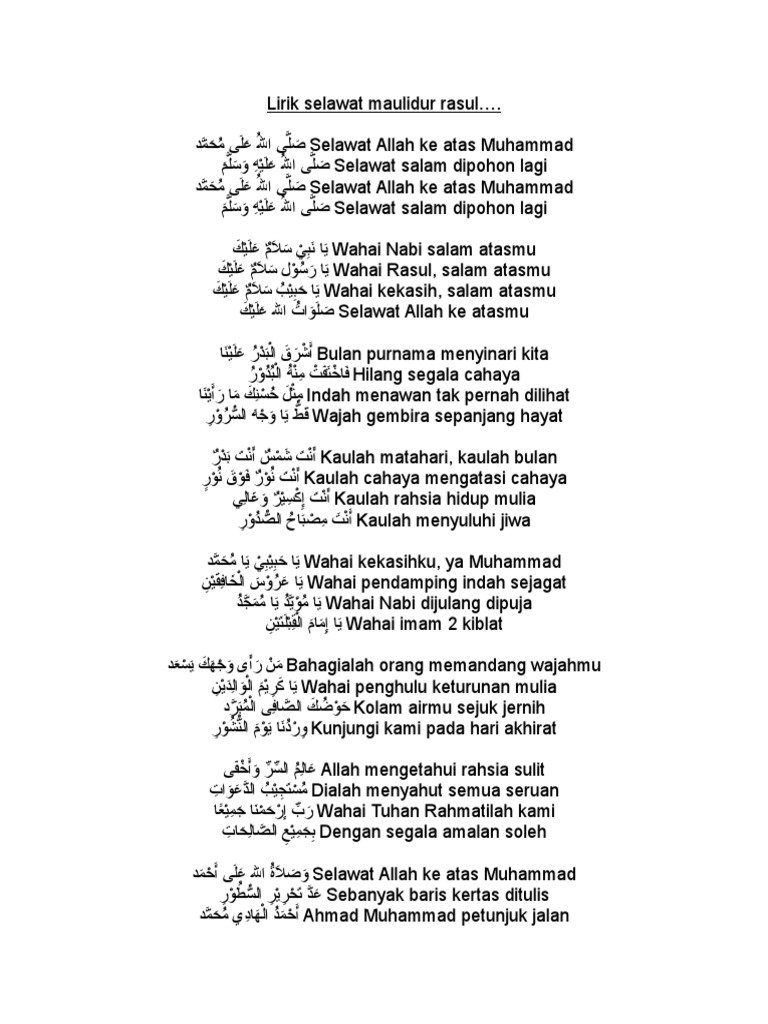 Lirik selawat maulidur rasul….
صَلَّى اللهُ عَلَى مُحَمَّد Selawat Allah ke atas Muhammad
صَلَّى اللهُ عَلَيْهِ وَسَلَّمَ Selawat salam dipohon lagi
صَلَّى اللهُ عَلَى مُحَمَّد Selawat Allah ke atas Muhammad
صَلَّى اللهُ عَلَيْهِ وَسَلَّمَ Selawat salam dipohon lagi
يَا نَبِيْ سَلاَمٌ عَلَيْكَ Wahai Nabi salam atasmu
يَا رَسُوْل سَلاَمٌ عَلَيْكَ Wahai Rasul, salam atasmu
يَا حَبِيْبُ سَلاَمٌ عَلَيْكَ Wahai kekasih, salam atasmu
صَلَوَاتُ الله عَلَيْكَ Selawat Allah ke atasmu
أَشْرَقَ الْبَدْرُ عَلَيْنَا Bulan purnama menyinari kita
فَاخْتَفَتْ مِنْهُ الْبُدُوْرُ Hilang segala cahaya
مِثْلَ حُسْنِكَ مَا رَأَيْنَا Indah menawan tak pernah dilihat
قَطُّ يَا وَجْه السُّرُوْرِ Wajah gembira sepanjang hayat
أَنْتَ شَمْسٌ أَنْتَ بَدْرٌ Kaulah matahari, kaulah bulan
أَنْتَ نُوْرٌ فَوْقَ نُوْرٍ Kaulah cahaya mengatasi cahaya
أَنْتَ إِكْسِيْرٌ وَغَالِي Kaulah rahsia hidup mulia
أَنْتَ مِصْبَاحُ الصُّدُوْرِ Kaulah menyuluhi jiwa
يَا حَبِيْبِيْ يَا مُحَمَّد Wahai kekasihku, ya Muhammad
يَا عَرُوْسَ الْخَافِقَيْنِ Wahai pendamping indah sejagat
يَا مُؤَيَّدُ يَا مُمَجَّدُ Wahai Nabi dijulang dipuja
يَا إِمَامَ الْقِبْلَتَيْنِ Wahai imam 2 kiblat
مَنْ رَأَى وَجْهَكَ يَسْعَد Bahagialah orang memandang wajahmu
يَا كَرِيْمَ الْوَالِدَيْنِ Wahai penghulu keturunan mulia
حَوْضُكَ الصَّافِى الْمُبَرَّد Kolam airmu sejuk jernih
وِرْدُنَا يَوْمَ النُّشُوْرِ Kunjungi kami pada hari akhirat
عَالِمُ السِّرِّ وَأَخْفَى Allah mengetahui rahsia sulit
مُسْتَجِيْبُ الدَّعَوَاتِ Dialah menyahut semua seruan
رَبِّ إِرْحَمْنا جَمِيْعًا Wahai Tuhan Rahmatilah kami
بِجَمِيْعِ الصَّالِحَاتِ Dengan segala amalan soleh
وَصَلاَةُ الله عَلَى أَحْمَد Selawat Allah ke atas Muhammad
عَدَّ تَحْرِيْرِ السُّطُوْرِ Sebanyak baris kertas ditulis
أَحْمَدُ الْهَادِي مُحَمَّد Ahmad Muhammad petunjuk jalan